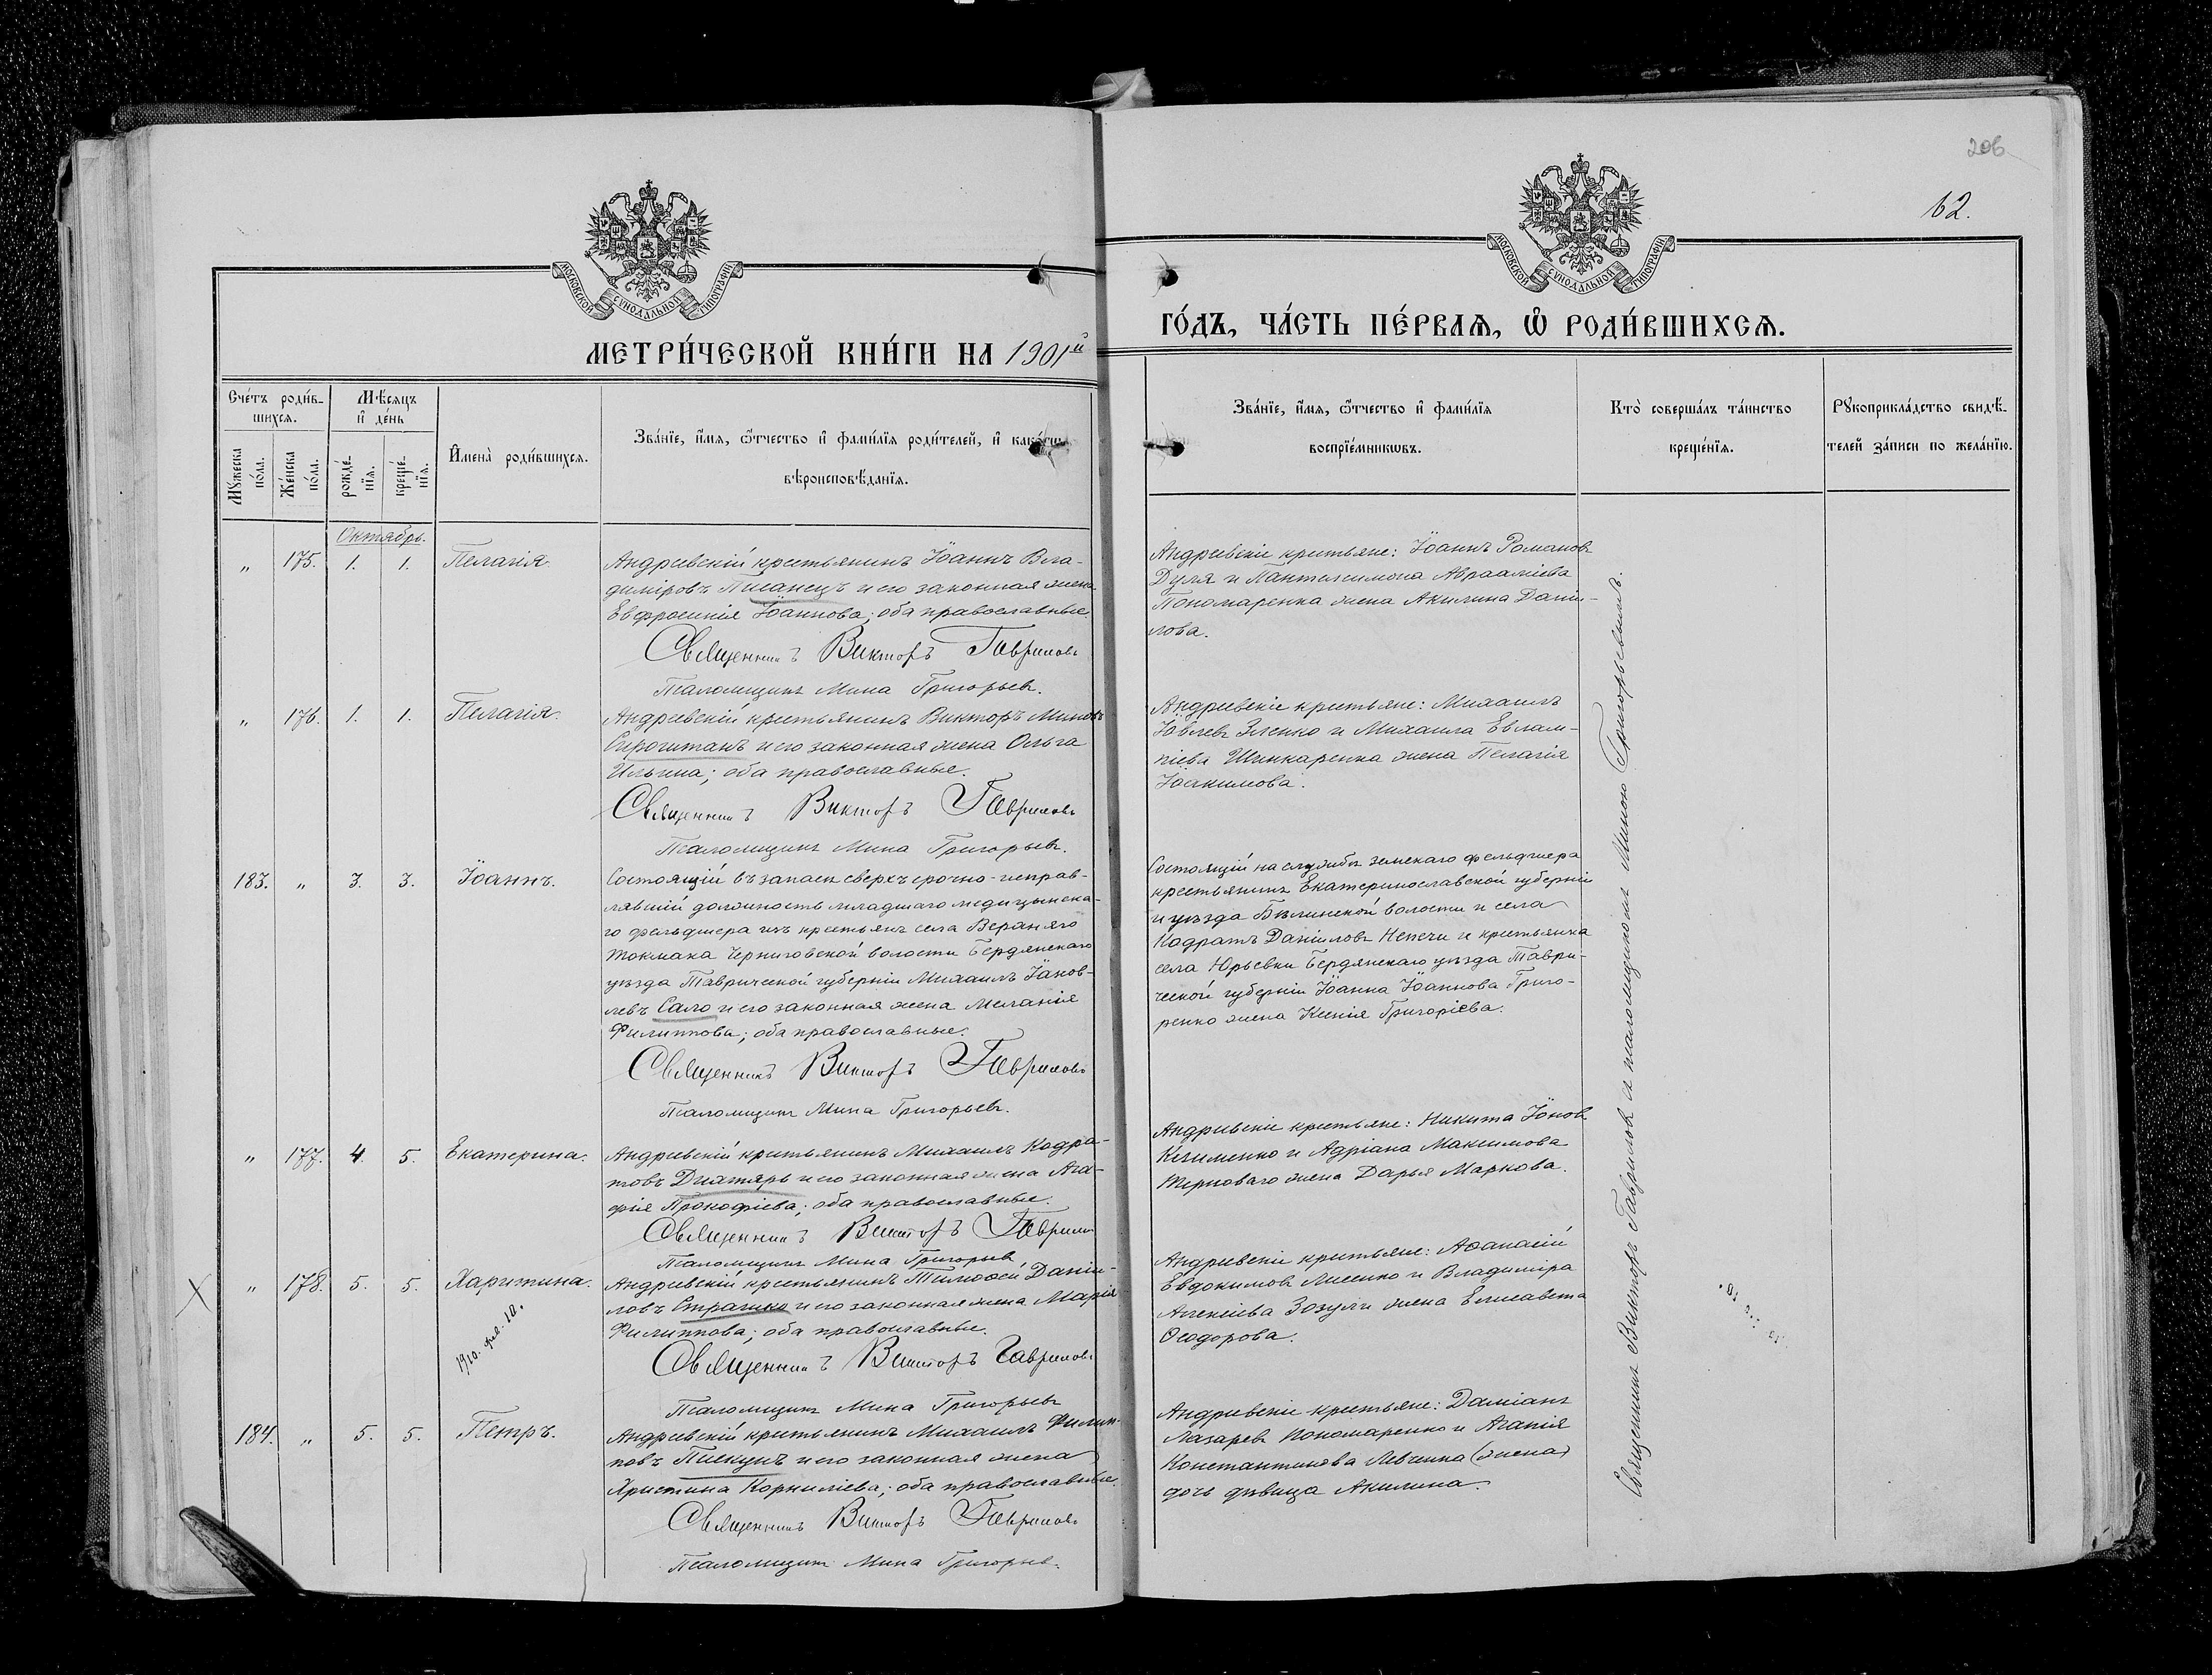 206
62.
МОСКОВСКОЙ СѴНОДАЛЬНОЙ ТИПОГРАФІИ
МОСКОВСКОЙ СѴНОДАЛЬНОЙ ТИПОГРАФІИ
МЕТРИ́ЧЕСКОЙ КНИ́ГИ НА 1901й
ГО́ДЪ, ЧА́СТЬ ПЕ́РВАѦ, Ѡ҆ РОДИ́ВШИХСѦ.
Сче́тъ роди́в-
шихсѧ.
Мꙋжеска по́ла.
Же́нска по́ла.
Мѣ́сѧцъ
и҆ де́нь
рожде́-
нїѧ.
креще́-
нїѧ.
И҆мена̀ роди́вшихсѧ.
Зва́нїе, и҆́мѧ, ѻ҆́тчество и҆ фами́лїѧ роди́телей, и҆ како́гѡ
вѣроисповѣ́данїѧ.
Зва́нїе, и҆́мѧ, ѻ҆́тчество и҆ фами́лїѧ
воспрїе́мникѡвъ.
Кто̀ соверша́лъ та́инство
креще́нїѧ.
Рꙋкоприкла́дство свидѣ́-
телей за́писи по жела́нїю.
Октябрь.
" 175. 1. 1. Пелагія.
Андреевскій крестьянинъ Іоаннъ Вла-
диміровъ Писанецъ и его законная жена
Евфросинія Іоаннова; оба православные.
Священникъ Викторъ Гавриловъ
Псаломщикъ Мина Григорьевъ.
Андреевскіе крестьяне: Іоаннъ Романовъ
Дуля и Пантелеимона Аврааміева
Пономаренка жена Акилина Даніи-
лова.
" 176. 1. 1. Пелагія.
Андреевскій крестьянинъ Викторъ Миновъ
Сирогитанъ и его законная жена Ольга
Ильина; оба православные.
Священникъ Викторъ Гавриловъ
Псаломщикъ Мина Григорьевъ.
Андреевскіе крестьяне: Михаилъ
Іовлевъ Зленко и Михаила Евлам-
піева Шинкаренка жена Пелагія
Іоакимова.
183. " 3. 3. Іоаннъ.
Состоящій въ запасѣ сверхъ срочно-исправ-
лявшій должность младшаго медицинска-
го фельдшера изъ крестьянъ села Верхняго
Токмака Черниговской волости Бердянскаго
уѣзда Таврической губерніи Михаилъ Іаков-
левъ Сало и его законная жена Меланія
Филиппова; оба православные.
Священникъ Викторъ Гавриловъ
Псаломщикъ Мина Григорьевъ.
Состоящій на службѣ земскаго фельдшера
крестьянинъ Екатеринославской губерніи
и уѣзда волости и села
Кодратъ Даніиловъ и крестьянка
села Юрьевки Бердянскаго уѣзда Таври-
ческой губерніи Іоанна Іоаннова Григо-
ренко жена Ксенія Григоріева.
" 177. 4. 5. Екатерина.
Андреевскій крестьянинъ Михаилъ Кодра-
товъ Дихтярь и его законная жена Ага-
фія Прокофіева; оба православные.
Священникъ Викторъ Гавриловъ
Псаломщикъ Мина Григорьевъ
Андреевскіе крестьяне: Никита Іоновъ
Клименко и Адріана Максимова
Терноваго жена Дарья Маркова.
" 178. 5. 5. Харитина.
1910. фев. 10.
Андреевскій крестьянинъ Тимофей Даніи-
ловъ Страшко и его законная жена Марія
Филиппова; оба православные.
Священникъ Викторъ Гавриловъ
Псаломщикъ Мина Григорьевъ
Андреевскіе крестьяне: Аѳанасій
Евдокимовъ Лисенко и Владиміра
Алексіева Зозули жена Елисавета
Ѳеодорова.
184. " 5. 5. Петръ.
Андреевскій крестьянинъ Михаилъ Филип-
повъ Пискунъ и его законная жена
Христина Корниліева; оба православные.
Священникъ Викторъ Гавриловъ
Псаломщикъ Мина Григорьевъ.
Андреевскіе крестьяне: Даміанъ
Лазаревъ Пономаренко и Агапія
Константинова Левченка (жена)
дочь дѣвица Акилина.
Священникъ Викторъ Гавриловъ съ псаломщикомъ Миною Григорьевымъ.